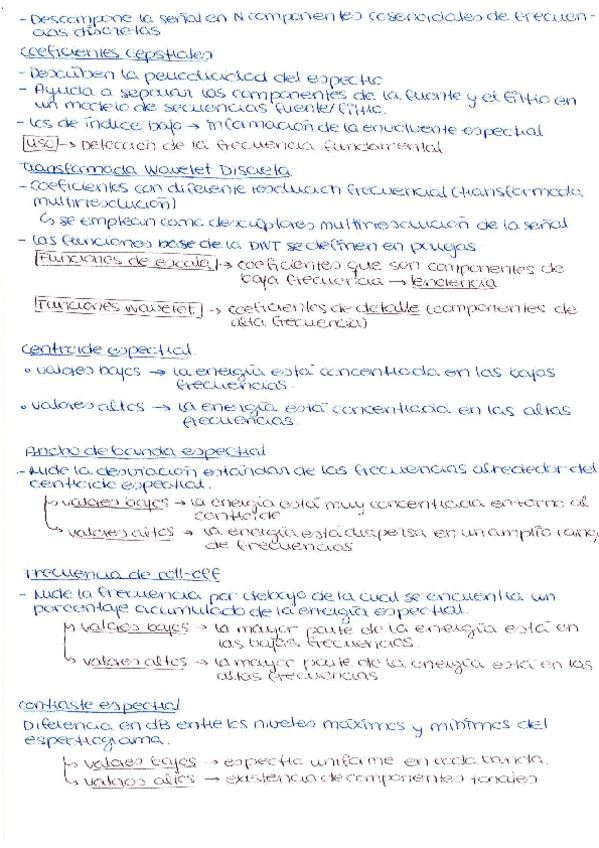 - Descompone la señal en N componentes cosenoidales de frecuen-
cias discretas
Coeficientes cepstrales
- Describen la periodicidad del espectro
- Ayuda a separar las componentes de la fuente y el filtro en
un modelo de secuencias fuente/filtro.
- Los de índice bajo → información de la envolvente espectral
USO → Detección de la frecuencia fundamental
Transformada Wavelet Discreta
- Coeficientes con diferente resolución frecuencial (transformada
multirresolución)
↳ se emplean como descriptores multirresolución de la señal
- Las funciones base de la DWT se definen en parejas
Funciones de escala → coeficientes que son componentes de
baja frecuencia → tendencia
Funciones wavelet → coeficientes de detalle (componentes de
alta frecuencia)
Centroide espectral
• valores bajos → la energía está concentrada en las bajas
frecuencias.
• valores altos → la energía está concentrada en las altas
frecuencias
Ancho de banda espectral
- Mide la desviación estándar de las frecuencias alrededor del
centroide espectral.
↳ valores bajos → la energía está muy concentrada en torno al
centroide
↳ valores altos → la energía está dispersa en un amplio rang
de frecuencias
Frecuencia de roll-off
- Mide la frecuencia por debajo de la cual se encuentra un
porcentaje acumulado de la energía espectral.
↳ valores bajos → la mayor parte de la energía está en
las bajas frecuencias.
↳ valores altos → la mayor parte de la energía está en las
altas frecuencias
Contraste espectral
Diferencia en dB entre los niveles máximos y mínimos del
espectrograma.
↳ valores bajos → espectro uniforme en cada banda.
↳ valores altos → existencia de componentes tonales